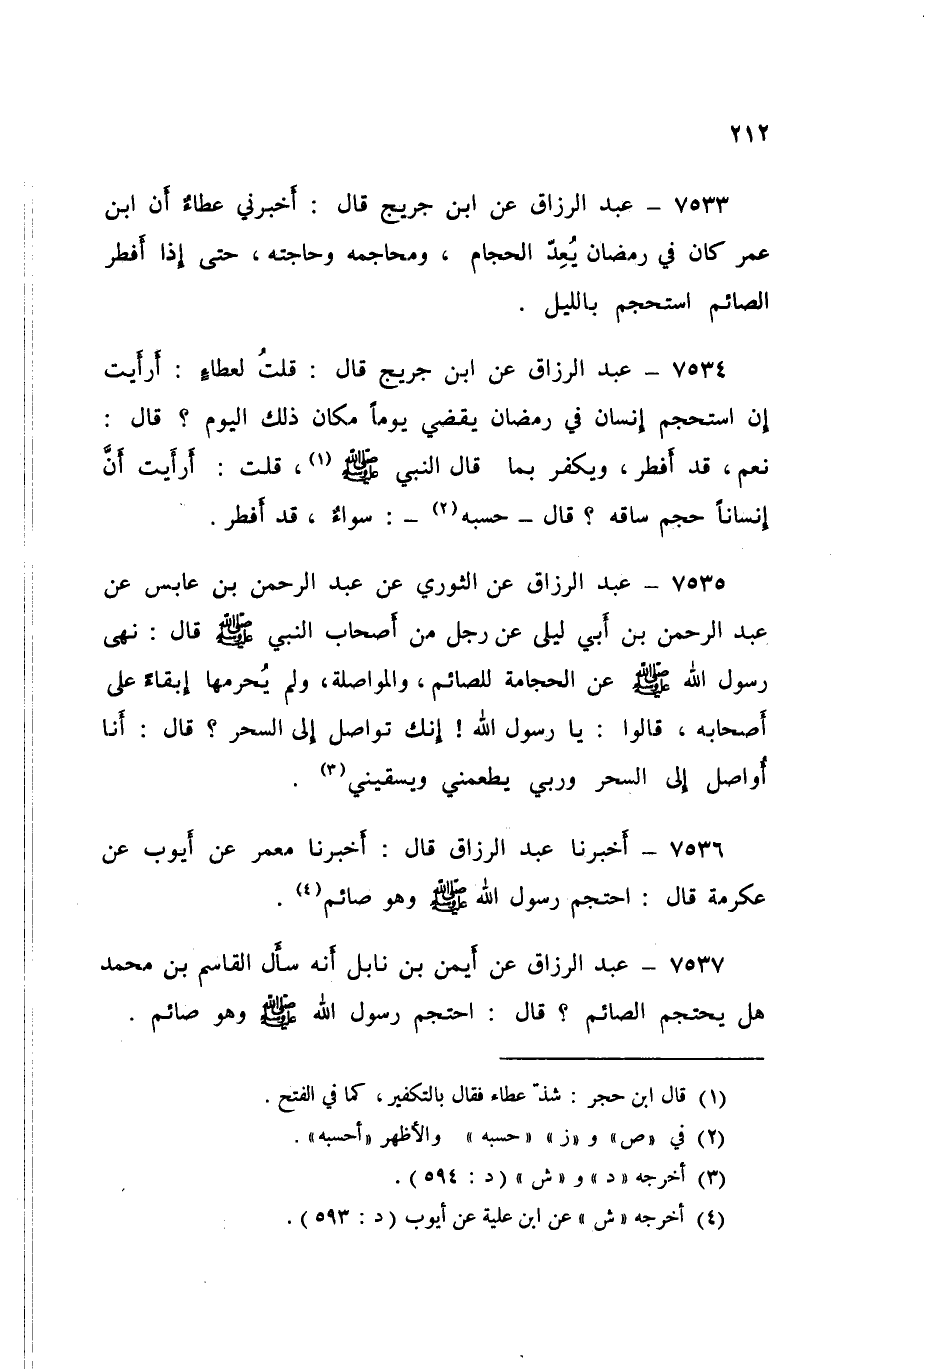 ٢١٢
٧٥٣٣ – عبد الرزاق عن ابن جريج قال : أَخبرني عطاءٌ أَن ابن
عمر كان في رمضان يُعِدّ الحجام ، ومحاجمه وحاجته ، حتى إِذا أَفطر
الصائم استحجم بالليل .
٧٥٣٤ – عبد الرزاق عن ابن جريج قال : قلتُ لعطاءٍ : أَرأَيت
إِن استحجم إِنسان في رمضان يقضي يوماً مكان ذلك اليوم ؟ قال :
نعم ، قد أَفطر ، ويكفر بما قال النبي ﷺ (١) ، قلت : أَرأَيت أَنَّ
إِنساناً حجم ساقه ؟ قال – حسبه (٢) – : سواءٌ ، قد أَفطر .
٧٥٣٥ – عبد الرزاق عن الثوري عن عبد الرحمن بن عابس عن
عبد الرحمن بن أَبي ليلى عن رجل من أَصحاب النبي ﷺ قال : نهى
رسول الله ﷺ عن الحجامة للصائم ، والمواصلة ، ولم يُحرمها إِبقاءً على
أَصحابه ، قالوا : يا رسول الله ! إِنك تواصل إِلى السحر ؟ قال : أَنا
أُواصل إِلى السحر وربي يطعمني ويسقيني (٣) .
٧٥٣٦ – أَخبرنا عبد الرزاق قال : أَخبرنا معمر عن أَيوب عن
عكرمة قال : احتجم رسول الله ﷺ وهو صائم (٤) .
٧٥٣٧ – عبد الرزاق عن أَيمن بن نابل أَنه سأَل القاسم بن محمد
هل يحتجم الصائم ؟ قال : احتجم رسول الله ﷺ وهو صائم .
(١) قال ابن حجر : شذّ عطاء فقال بالتكفير ، كما في الفتح .
(٢) في «ص» و «ز» «حسبه» والأظهر «أحسبه» .
(٣) أخرجه «د» و «ش» (د : ٥٩٤) .
(٤) أخرجه «ش» عن ابن علية عن أيوب (د : ٥٩٣) .